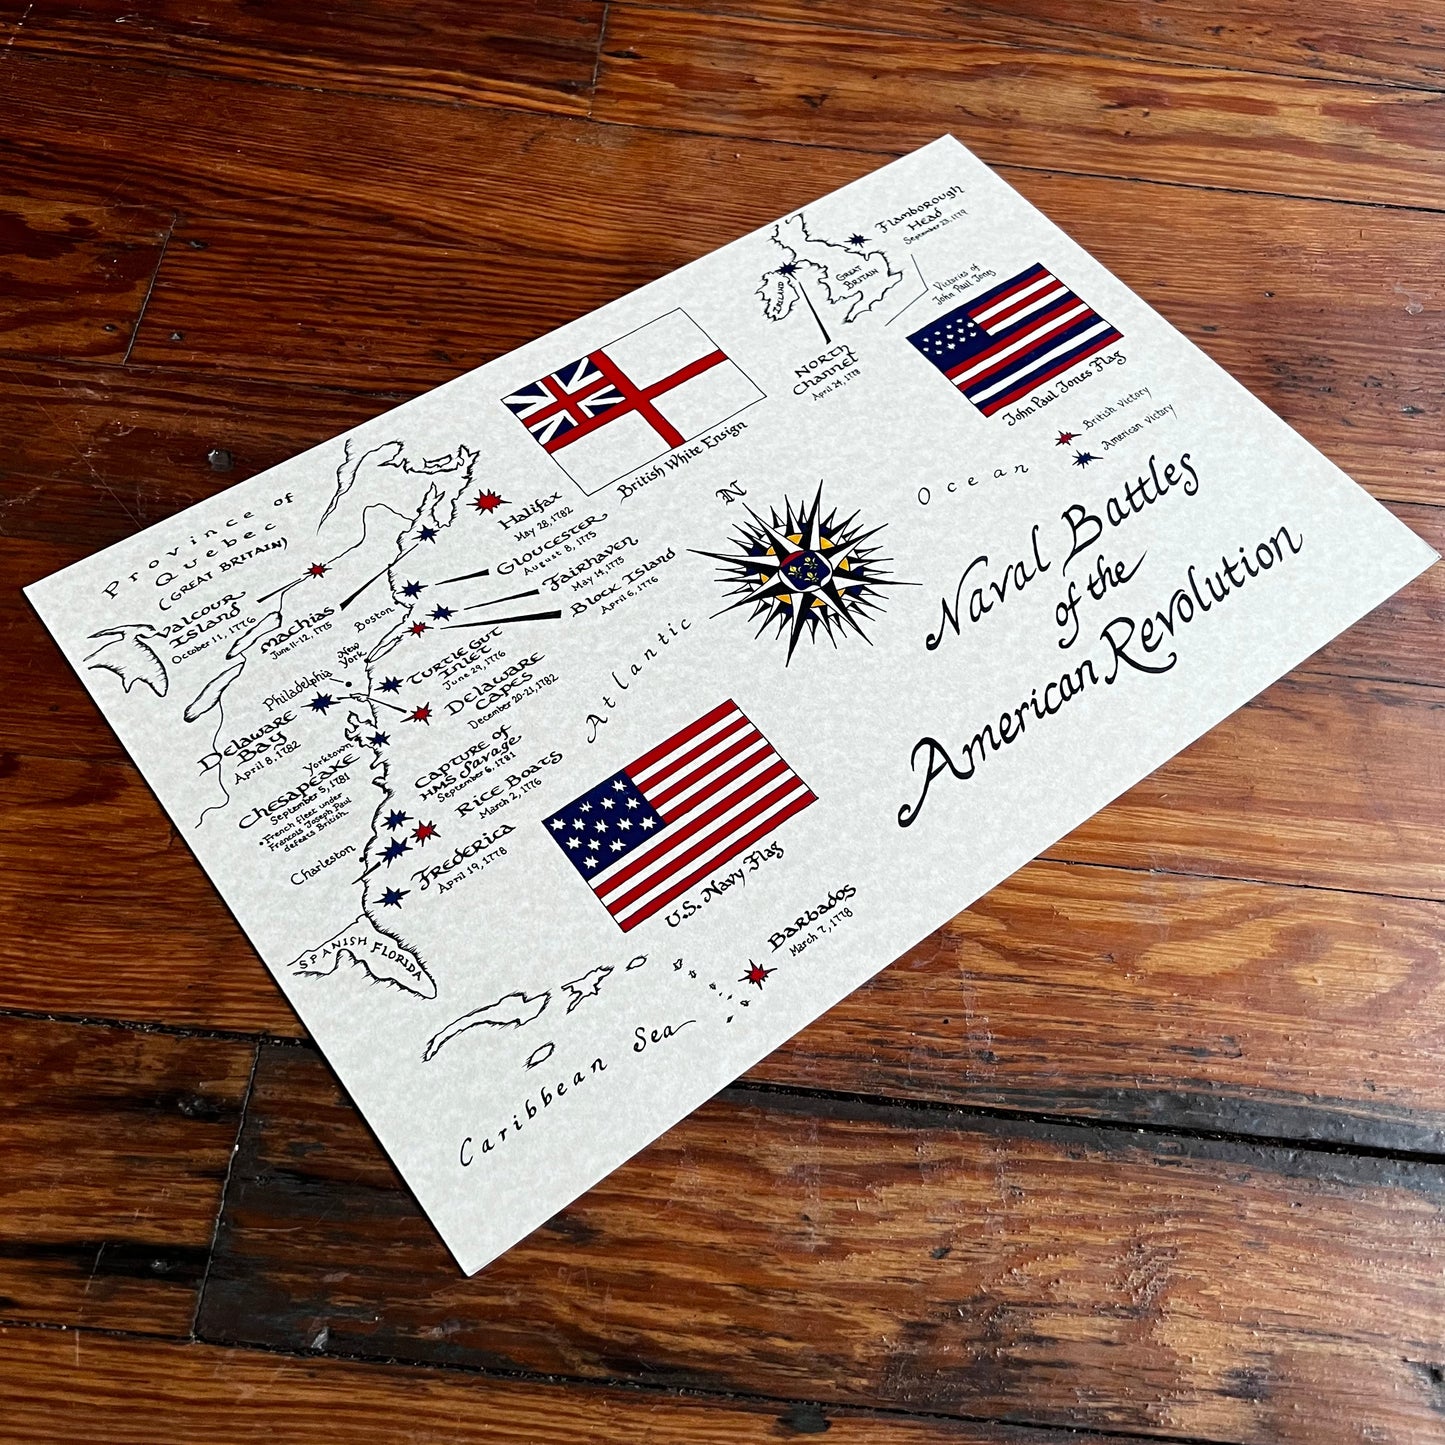 Naval Battles
of the
American Revolution
Flamborough
Head
September 23, 1779
Victories of
John Paul Jones
GREAT
BRITAIN
IRELAND
NORTH
Channel
April 24, 1778
John Paul Jones Flag
British Victory
American Victory
British White Ensign
N
Atlantic Ocean
Province of
Quebec
(GREAT BRITAIN)
Halifax
May 28, 1782
GLOUCESTER
August 8, 1775
Fairhaven
May 14, 1775
Block Island
April 6, 1776
Valcour
Island
October 11, 1776
Machias
June 11-12, 1775
Boston
New
York
Philadelphia
Turtle Gut
Inlet
June 29, 1776
Delaware
Capes
December 20-21, 1782
Delaware
Bay
April 8, 1782
Yorktown
Chesapeake
September 5, 1781
*French fleet under
Francois Joseph Paul
defeats British.
Capture of
HMS Savage
September 6, 1781
Rice Boats
March 2, 1776
Charleston
Frederica
April 19, 1778
SPANISH FLORIDA
U.S. Navy Flag
Barbados
March 7, 1778
Caribbean Sea